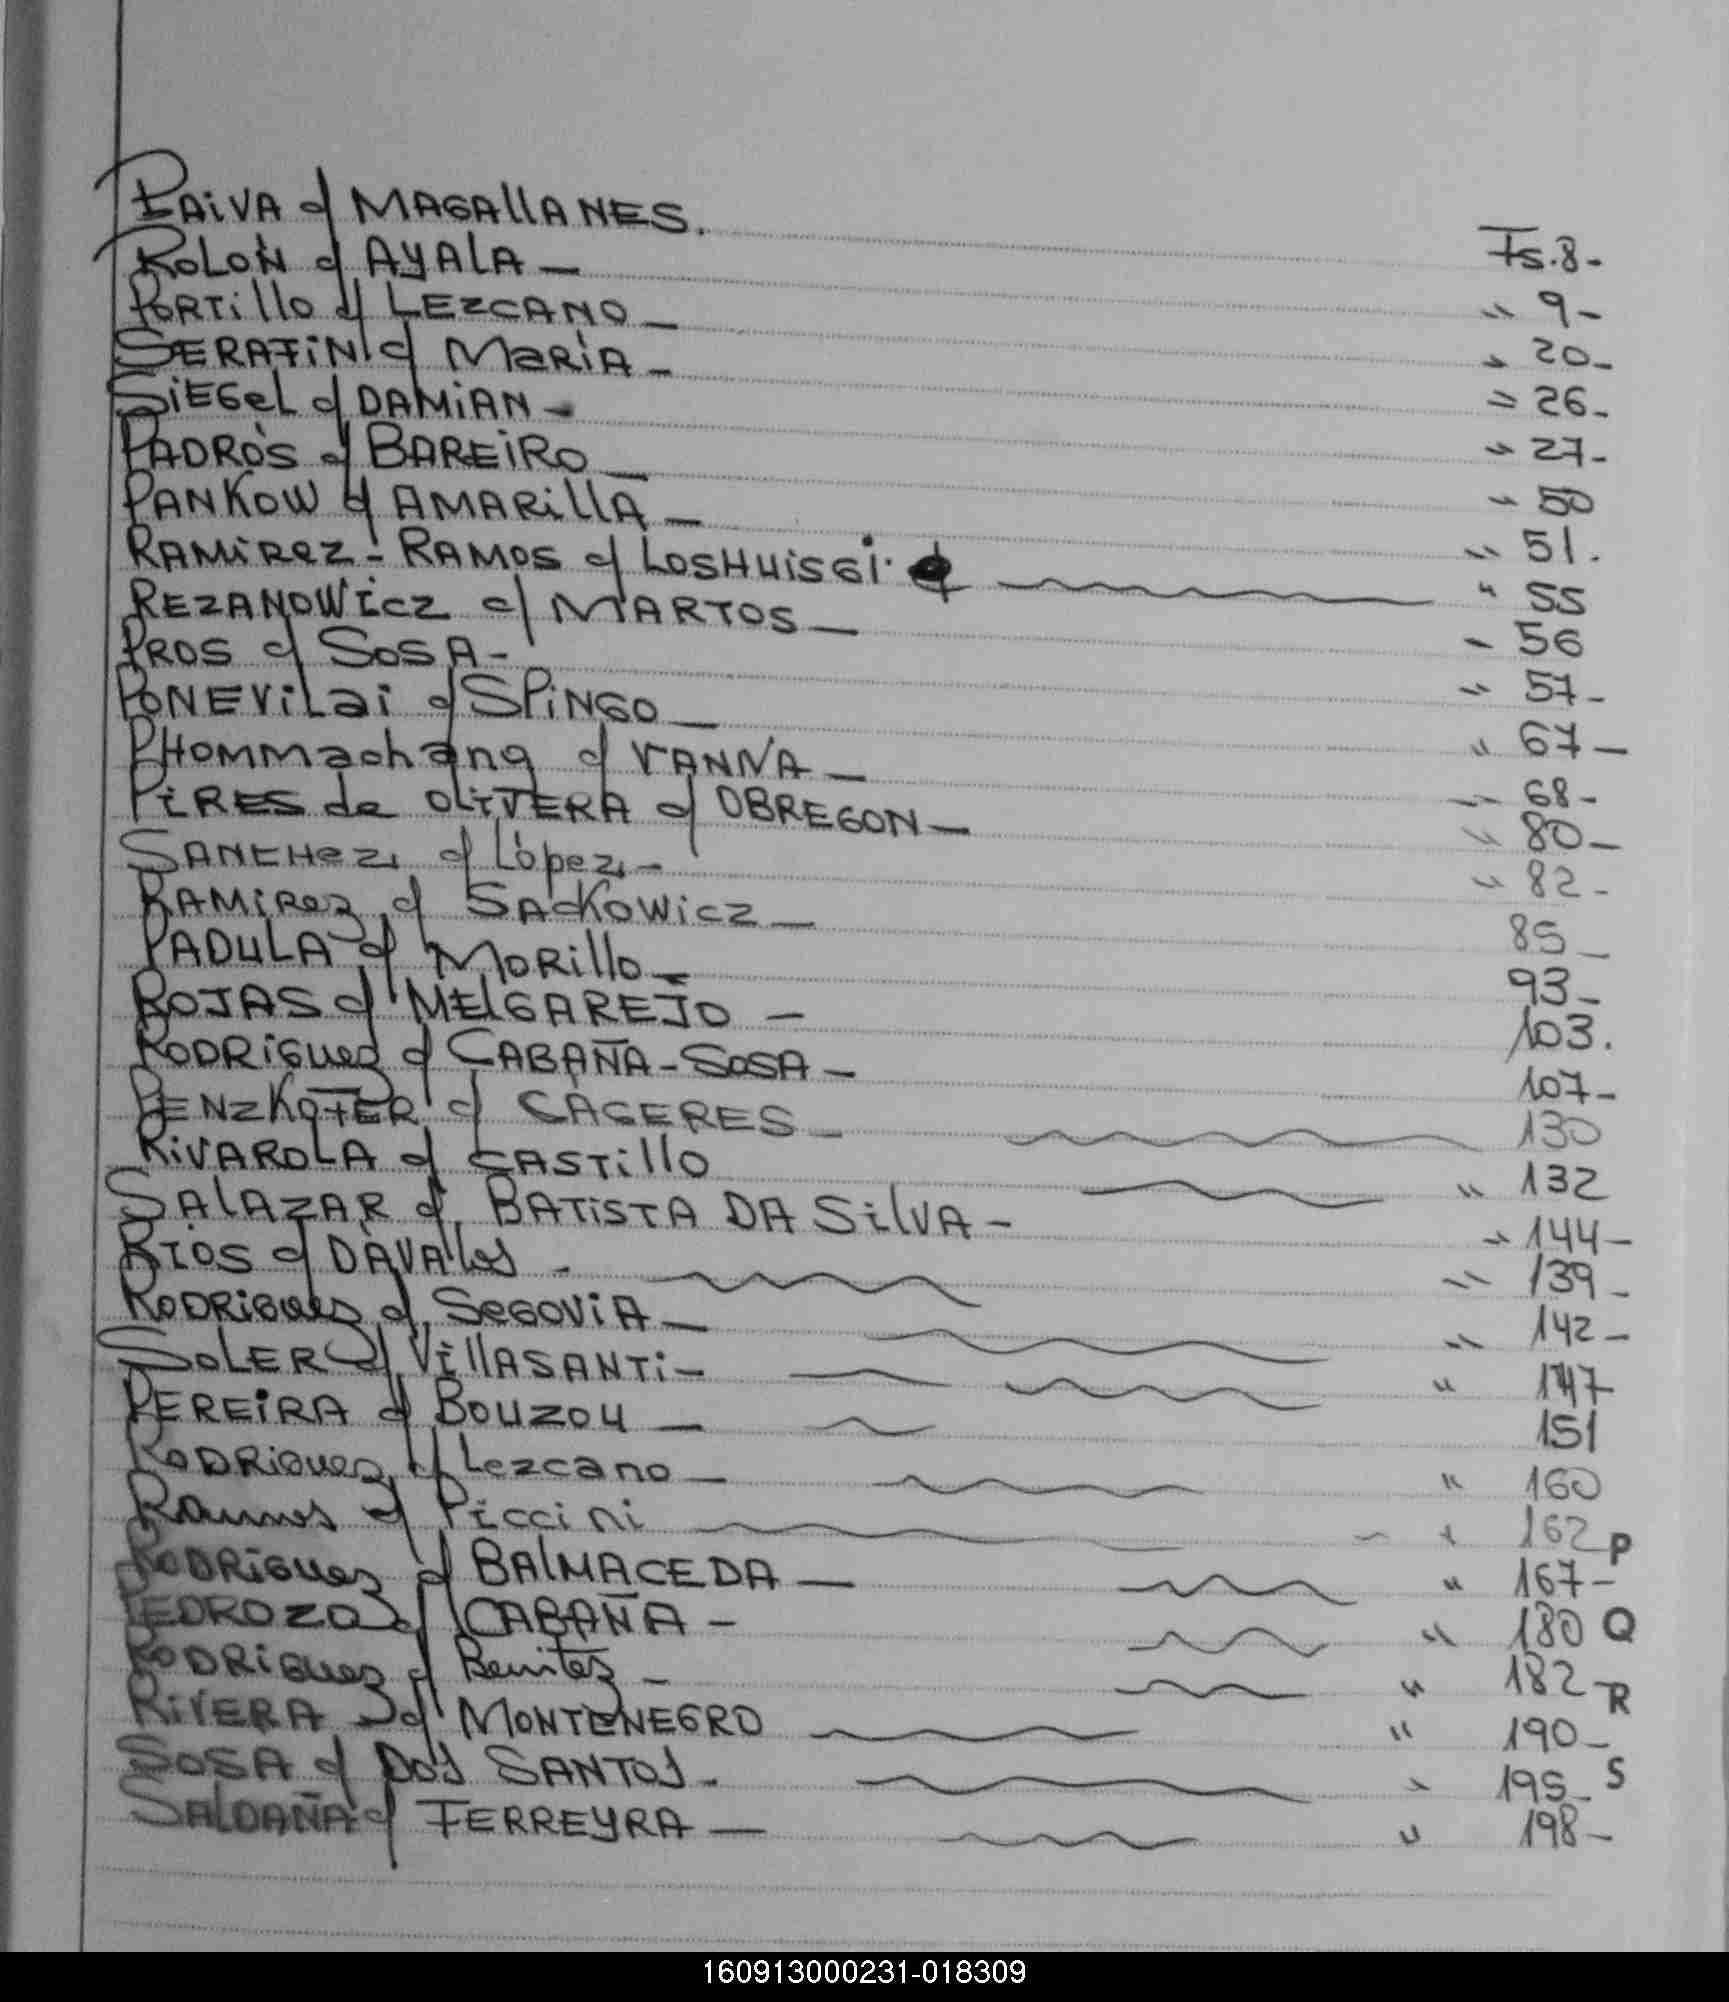 PAIVA c/ MAGALLANES. Fs. 8-
ROLON c/ AYALA - " 9-
PORTILLO c/ LEZCANO - " 20-
SERAFINI c/ MARÍA - " 26-
SIEGEL c/ DAMIAN - " 27-
PADRÓS c/ BAREIRO - " 50
PANKOW c/ AMARILLA - " 51.
RAMIREZ-RAMOS c/ LOSHUISGI. " 55
REZANOWICZ c/ MARTOS - " 56
PROS c/ SOSA - " 57-
PONEVILAI c/ SPINGO - " 67-
PHOMMACHANG c/ VANNA - " 68-
PIRES de OLIVERA c/ OBREGON - " 80-
SANCHEZ c/ López - " 82-
RAMIREZ c/ SACKOWICZ - 85-
PADULA c/ MORILLO - 93-
ROJAS c/ MELGAREJO - 103.
RODRIGUEZ c/ CABAÑA-SOSA - 107-
PENZKOFER c/ CACERES - 130
RIVAROLA c/ CASTILLO " 132
SALAZAR c/ BATISTA DA SILVA - " 144-
RIOS c/ DAVALOS - " 139-
RODRIGUEZ c/ SEGOVIA - " 142-
SOLER c/ VILLASANTI - " 147
PEREIRA c/ BOUZOU - 151
RODRIGUEZ c/ Lezcano - " 160
Ramos c/ Piccini " 162 P
RODRIGUEZ c/ BALMACEDA - " 167-
PEDROZO c/ CABAÑA - " 180 Q
RODRIGUEZ c/ Benitez - " 182 R
RIVERA c/ MONTENEGRO " 190-
SOSA c/ DOS SANTOS - " 195- S
SALDAÑA c/ FERREYRA - " 198-
160913000231-018309